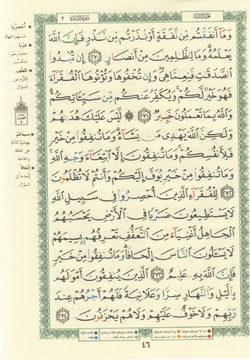 وَمَآ أَنفَقْتُم مِّن نَّفَقَةٍ أَوْ نَذَرْتُم مِّن نَّذْرٍ فَإِنَّ ٱللَّهَ
يَعْلَمُهُۥ وَمَا لِلظَّـٰلِمِينَ مِنْ أَنصَارٍ ﴿٢٧٠﴾ إِن تُبْدُوا۟
ٱلصَّدَقَـٰتِ فَنِعِمَّا هِىَ وَإِن تُخْفُوهَا وَتُؤْتُوهَا ٱلْفُقَرَآءَ
فَهُوَ خَيْرٌ لَّكُمْ وَيُكَفِّرُ عَنكُم مِّن سَيِّـَٔاتِكُمْ
وَٱللَّهُ بِمَا تَعْمَلُونَ خَبِيرٌ ﴿٢٧١﴾ لَّيْسَ عَلَيْكَ هُدَىٰهُمْ
وَلَـٰكِنَّ ٱللَّهَ يَهْدِى مَن يَشَآءُ وَمَا تُنفِقُوا۟ مِنْ خَيْرٍ
فَلِأَنفُسِكُمْ وَمَا تُنفِقُونَ إِلَّا ٱبْتِغَآءَ وَجْهِ ٱللَّهِ
وَمَا تُنفِقُوا۟ مِنْ خَيْرٍ يُوَفَّ إِلَيْكُمْ وَأَنتُمْ لَا تُظْلَمُونَ
﴿٢٧٢﴾ لِلْفُقَرَآءِ ٱلَّذِينَ أُحْصِرُوا۟ فِى سَبِيلِ ٱللَّهِ
لَا يَسْتَطِيعُونَ ضَرْبًا فِى ٱلْأَرْضِ يَحْسَبُهُمُ
ٱلْجَاهِلُ أَغْنِيَآءَ مِنَ ٱلتَّعَفُّفِ تَعْرِفُهُم بِسِيمَـٰهُمْ
لَا يَسْـَٔلُونَ ٱلنَّاسَ إِلْحَافًا وَمَا تُنفِقُوا۟ مِنْ خَيْرٍ
فَإِنَّ ٱللَّهَ بِهِۦ عَلِيمٌ ﴿٢٧٣﴾ ٱلَّذِينَ يُنفِقُونَ أَمْوَٰلَهُم
بِٱلَّيْلِ وَٱلنَّهَارِ سِرًّا وَعَلَانِيَةً فَلَهُمْ أَجْرُهُمْ عِندَ
رَبِّهِمْ وَلَا خَوْفٌ عَلَيْهِمْ وَلَا هُمْ يَحْزَنُونَ ﴿٢٧٤﴾
٤٦